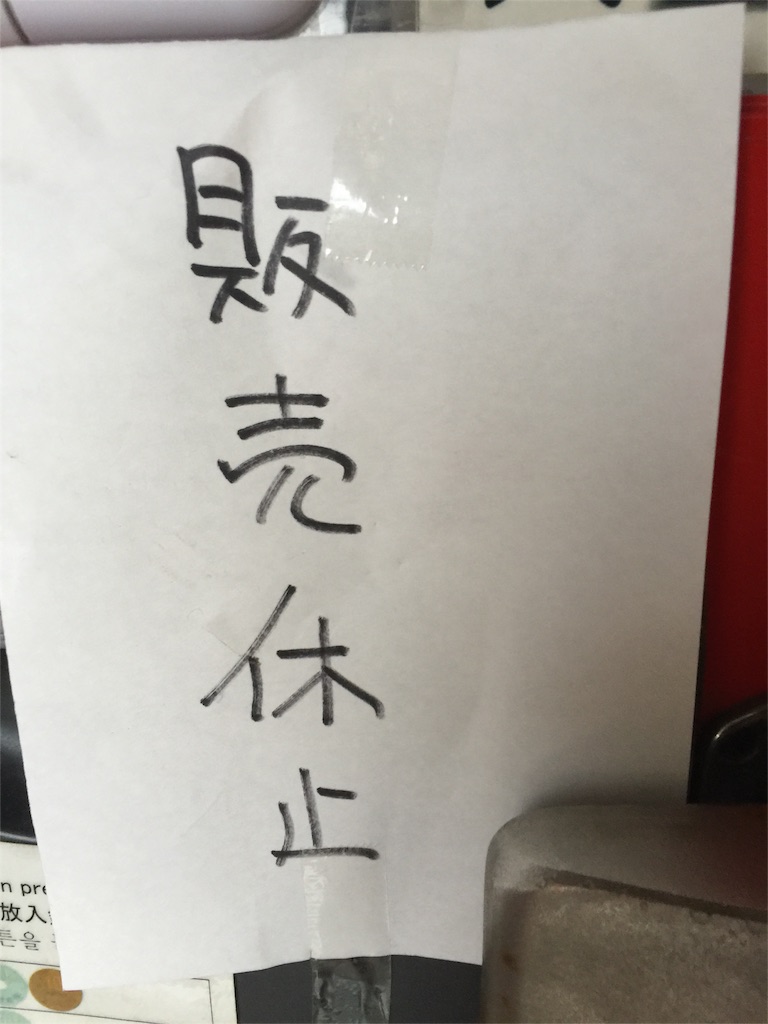 販売休止
n pre
放入
튼을